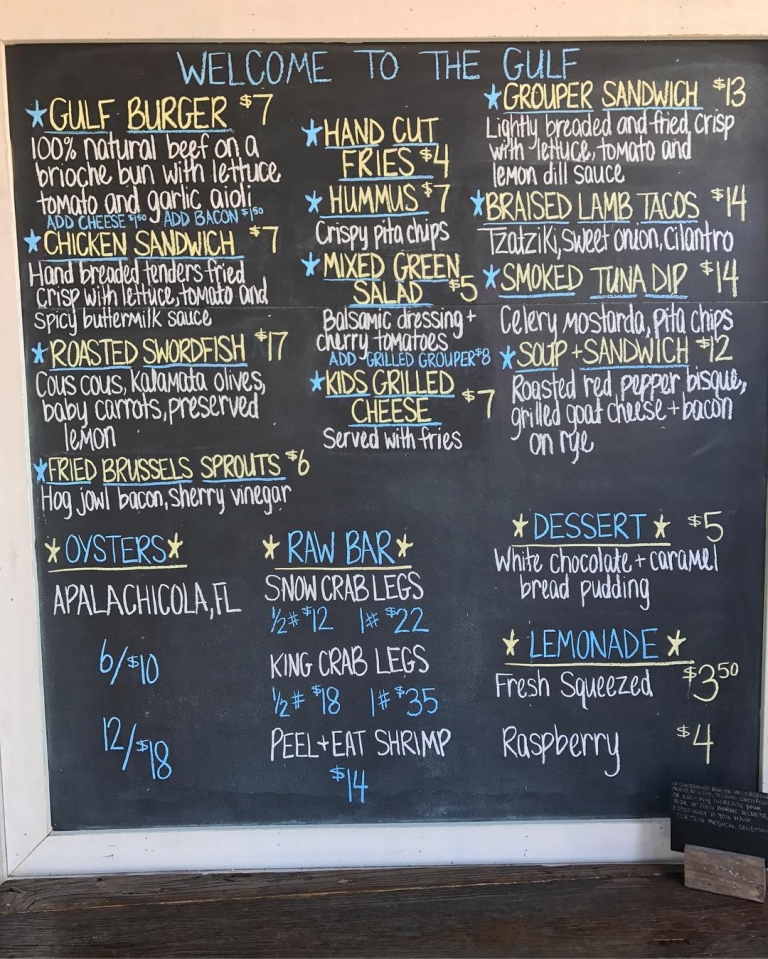 WELCOME TO THE GULF
GULF BURGER $7
100% natural beef on a
brioche bun with lettuce,
tomato and garlic aioli
ADD CHEESE $1.50 ADD BACON $1.50
CHICKEN SANDWICH $7
Hand breaded tenders fried
crisp with lettuce, tomato and
spicy buttermilk sauce
ROASTED SWORDFISH $17
Cous cous, Kalamata olives,
baby carrots, preserved
lemon
FRIED BRUSSELS SPROUTS $6
Hog jowl bacon, sherry vinegar
HAND CUT
FRIES $4
HUMMUS $7
Crispy pita chips
MIXED GREEN
SALAD $5
Balsamic dressing +
cherry tomatoes
ADD GRILLED GROUPER $8
KIDS GRILLED
CHEESE $7
Served with fries
GROUPER SANDWICH $13
Lightly breaded and fried, crisp
with lettuce, tomato and
lemon dill sauce
BRAISED LAMB TACOS $14
Tzatziki, sweet onion, cilantro
SMOKED TUNA DIP $14
Celery Mostarda, pita chips
SOUP + SANDWICH $12
Roasted red pepper bisque,
grilled goat cheese + bacon
on rye
OYSTERS
APALACHICOLA, FL
6/$10
12/$18
RAW BAR
SNOW CRAB LEGS
1/2# $12 1# $22
KING CRAB LEGS
1/2# $18 1# $35
PEEL + EAT SHRIMP
$14
DESSERT $5
White chocolate + caramel
bread pudding
LEMONADE
Fresh Squeezed $3.50
Raspberry $4